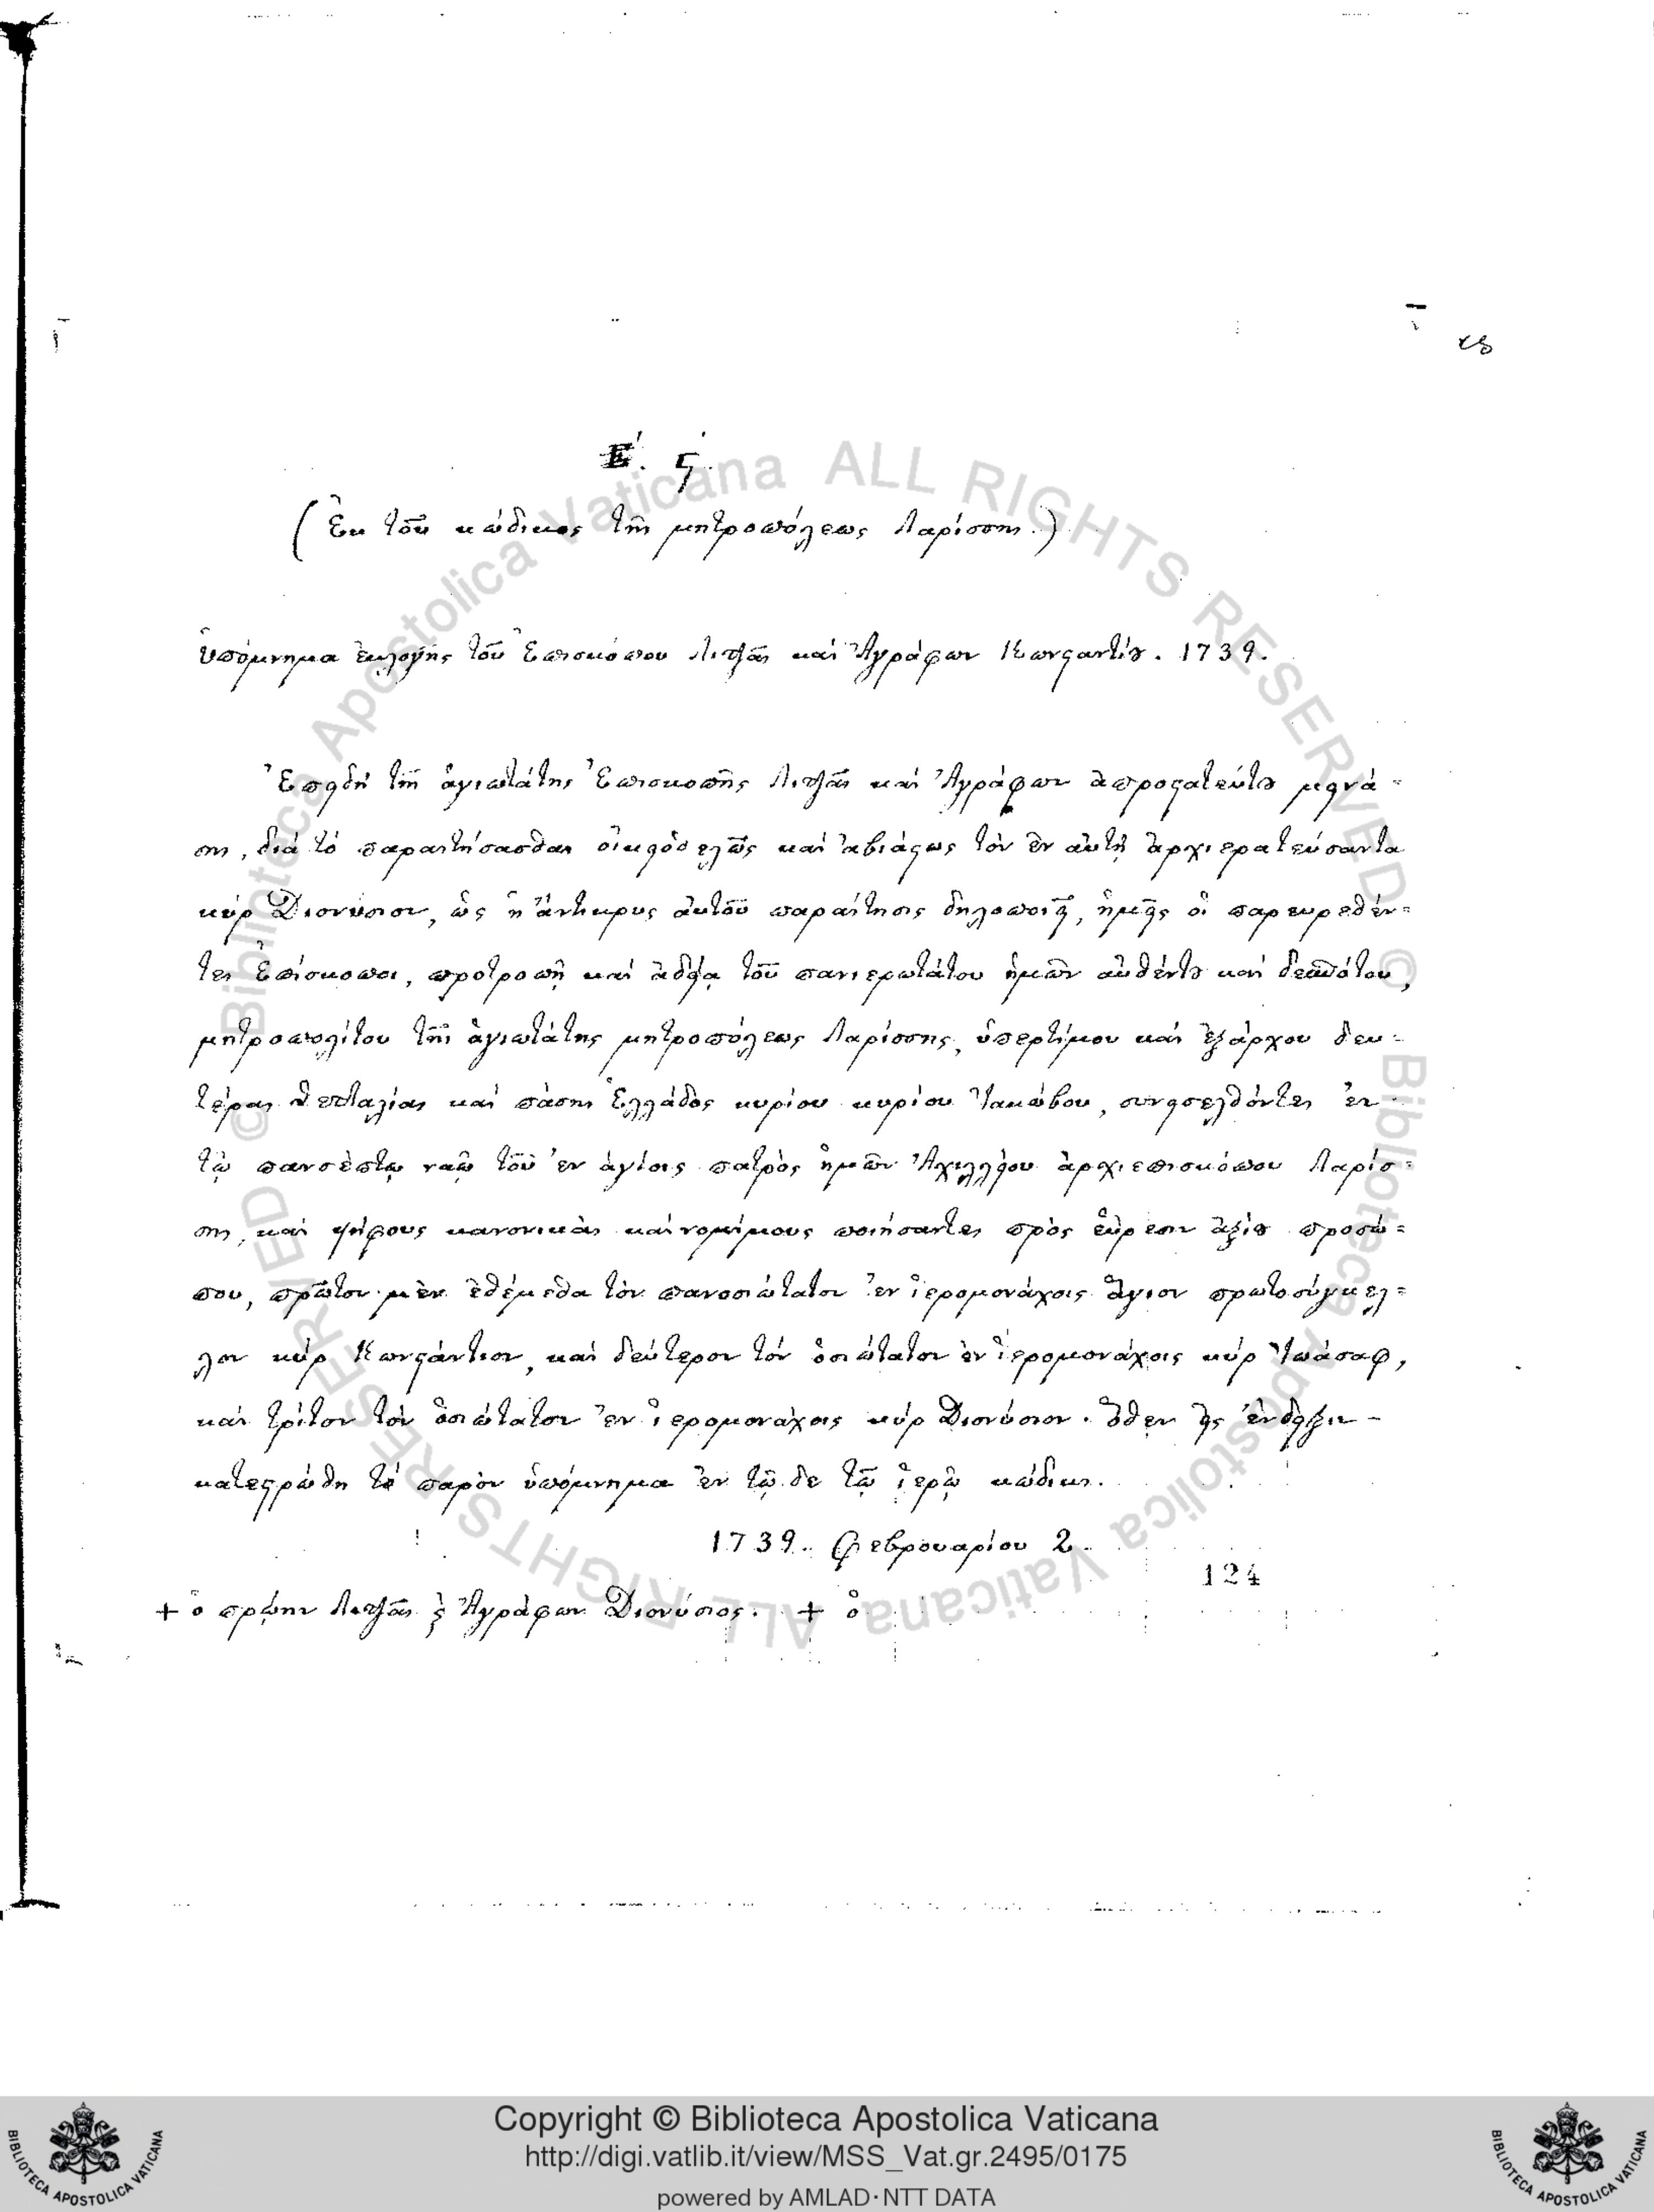 κδ
Ε΄. ϛ΄.
(Ἐκ τοῦ κώδικος τῆς μητροπόλεως Λαρίσσης.)
Ὑπόμνημα ἐκλογῆς τοῦ Ἐπισκόπου Λιτζᾶς καὶ Ἀγράφων Κωνσταντίου. 1739.
Ἐπειδὴ τῆς ἁγιωτάτης Ἐπισκοπῆς Λιτζᾶς καὶ Ἀγράφων ἀπροστατεύτου μεινά=
σης, διὰ τὸ παραιτήσασθαι οἰκειοθελῶς καὶ ἀβιάστως τὸν ἐν αὐτῇ ἀρχιερατεύσαντα
κὺρ Διονύσιον, ὡς ἡ ἄντικρυς αὐτοῦ παραίτησις δηλοποιεῖ, ἡμεῖς οἱ παρευρεθέν=
τες Ἐπίσκοποι, προτροπῇ καὶ ἀδείᾳ τοῦ πανιερωτάτου ἡμῶν αὐθέντου καὶ δεσπότου,
μητροπολίτου τῆς ἁγιωτάτης μητροπόλεως Λαρίσσης, ὑπερτίμου καὶ ἐξάρχου δευ=
τέρας Θετταλίας καὶ πάσης Ἑλλάδος κυρίου κυρίου Ἰακώβου, συνεισελθόντες ἐν
τῷ πανσέπτῳ ναῷ τοῦ ἐν ἁγίοις πατρὸς ἡμῶν Ἀχιλλείου ἀρχιεπισκόπου Λαρίσ=
σης, καὶ ψήφους κανονικὰς καὶ νομίμους ποιήσαντες πρὸς εὕρεσιν ἀξίου προσώ=
που, πρῶτον μὲν ἐθέμεθα τὸν πανοσιώτατον ἐν ἱερομονάχοις ἅγιον πρωτοσύγκελ=
λον κὺρ Κωνστάντιον, καὶ δεύτερον τὸν ὁσιώτατον ἐν ἱερομονάχοις κὺρ Ἰωάσαφ,
καὶ τρίτον τὸν ὁσιώτατον ἐν ἱερομονάχοις κὺρ Διονύσιον. Ὅθεν εἰς ἔνδειξιν
κατεστρώθη τὸ παρὸν ὑπόμνημα ἐν τῷ δε τῷ ἱερῷ κώδικι.
1739. Φεβρουαρίου 2.
124
+ ὁ πρώην Λιτζᾶς ϗ Ἀγράφων Διονύσιος. + ὁ
© Biblioteca Apostolica Vaticana ALL RIGHTS RESERVED © Biblioteca Apostolica Vaticana ALL RIGHTS RESERVED
Copyright © Biblioteca Apostolica Vaticana
http://digi.vatlib.it/view/MSS_Vat.gr.2495/0175
powered by AMLAD·NTT DATA
BIBLIOTECA APOSTOLICA VATICANA
BIBLIOTECA APOSTOLICA VATICANA